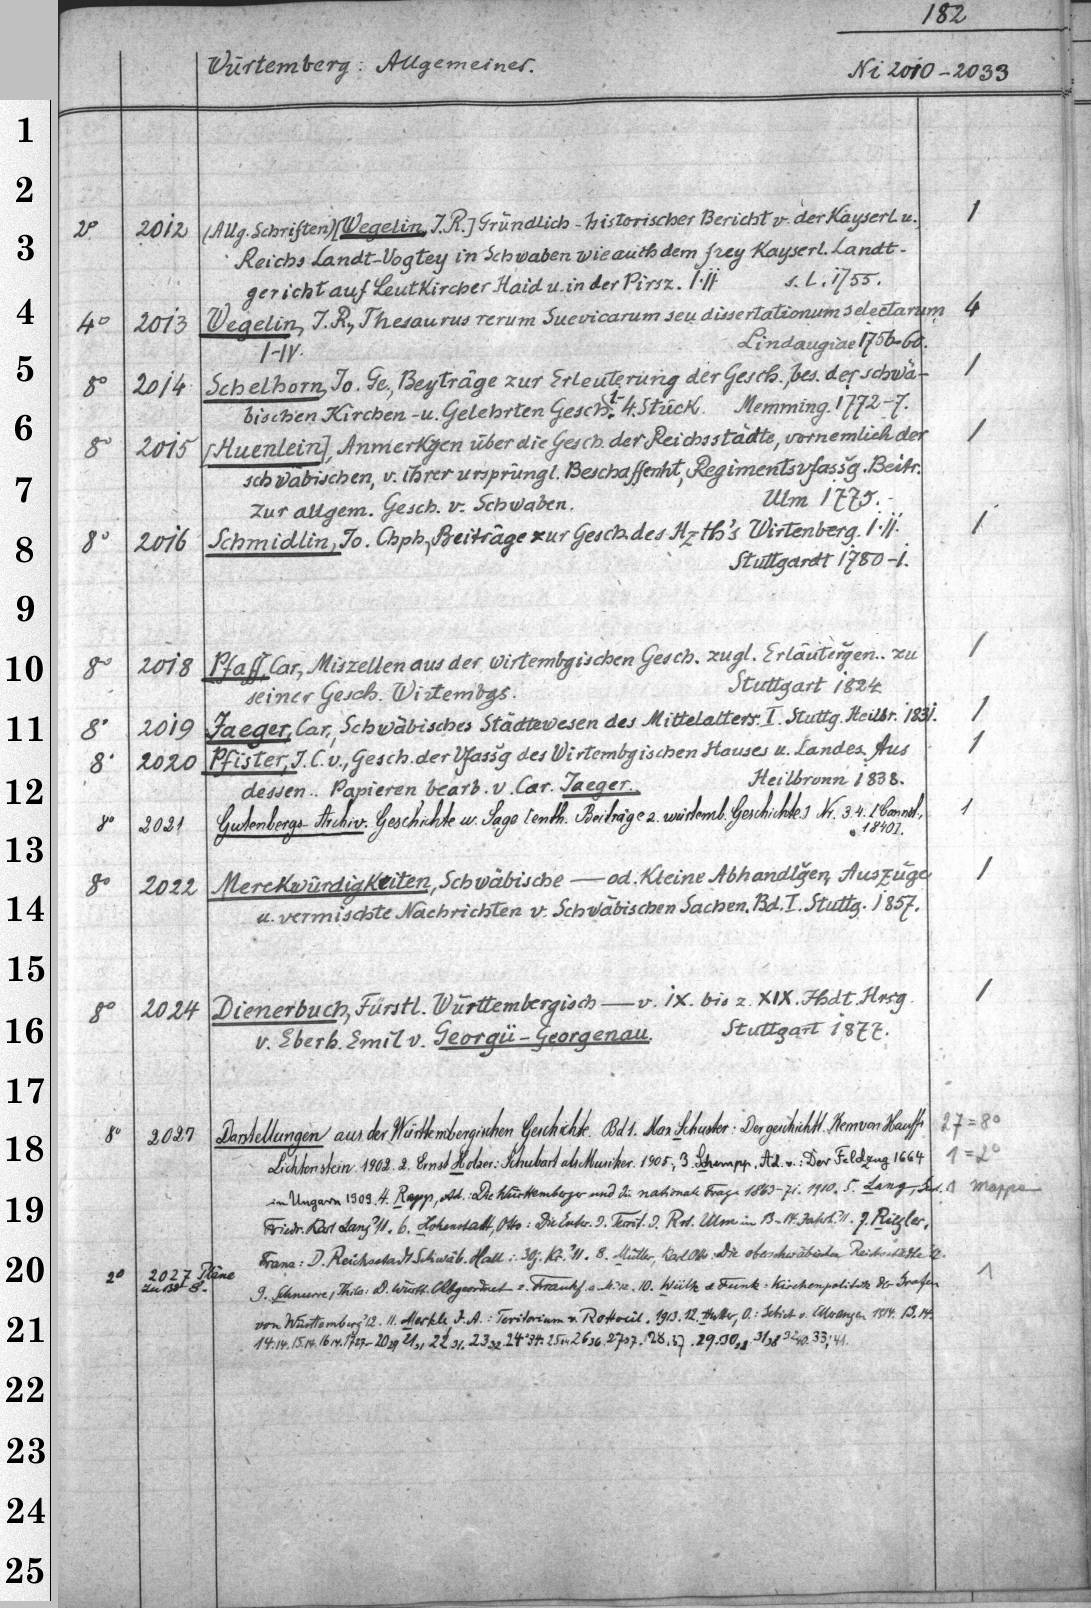 182
Würtemberg: Allgemeines. Ni 2010-2033
1
2
2° 2012 (Allg. Schriften) [Wegelin, J.R.] Gründlich-historischer Bericht v. der Kayserl. u. 1
3 Reichs Landt-Vogtey in Schwaben wie auch dem frey Kayserl. Landt-
gericht auf Leutkircher Haid u. in der Pirsz. I.II s.l. 1755.
4 4° 2013 Wegelin, J.R., Thesaurus rerum Suevicarum seu dissertationum selectarum 4
I-IV. Lindaugiae 1756-60.
5 8° 2014 Schelhorn, Jo. Ge., Beyträge zur Erleuterung der Gesch., bes. der schwä- 1
bischen Kirchen- u. Gelehrten Gesch. 4. Stück. Memming. 1772-7.
6 8° 2015 [Huenlein], Anmerkgen über die Gesch. der Reichsstädte, vornemlich der 1
schwäbischen, v. ihrer ursprüngl. Beschaffenht, Regimentsvfassg. Beitr.
7 zur allgem. Gesch. v. Schwaben. Ulm 1775.
8 8° 2016 Schmidlin, Jo. Chph., Beiträge zur Gesch. des Hzth's Wirtenberg. I.II. 1
Stuttgardt 1780-1.
9
10 8° 2018 Pfaff, Car, Miszellen aus der wirtembgischen Gesch. zugl. Erläutergen.. zu 1
seiner Gesch. Wirtembgs. Stuttgart 1824
11 8° 2019 Jaeger, Car., Schwäbisches Städtewesen des Mittelalters. I. Stuttg. Heilbr. 1831. 1
8° 2020 Pfister, J.C.v., Gesch. der Vfassg des Wirtembgischen Hauses u. Landes. Aus 1
12 dessen.. Papieren bearb. v. Car. Jaeger. Heilbronn 1838.
8° 2021 Gutenbergs-Archiv. Geschichte u. Sage [enth. Beiträge z. württemb. Geschichte] Nr. 3.4. [Cannst., 1
1840].
13
8° 2022 Merckwürdigkeiten, Schwäbische — od. Kleine Abhandlgen, Auszüge 1
14 u. vermischte Nachrichten v. Schwäbischen Sachen. Bd. I. Stuttg. 1857.
15
8° 2024 Dienerbuch, Fürstl. Württembergisch — v. IX. bis z. XIX. Jhdt. Hrsg. 1
16 v. Eberh. Emil v. Georgii-Georgenau. Stuttgart 1877.
17
8° 2027 Darstellungen aus der Württembergischen Geschichte. Bd 1. Max Schuster: Der geschichtl. Kern von Hauffs 27=8°
18 Lichtenstein 1902. 2. Ernst Holzer: Schubart als Musiker. 1905, 3. Schempp, Ad. v.: Der Feldzug 1664 1=2°
in Ungarn 1909. 4. Rapp, Ad.: Die Württemberger und die nationale Frage 1863-71. 1910. 5. Lang, 1 Mappe
19 Friedr. Karl Lang '11. 6. Hohenstatt, Otto: Die Entw. d. Territ. d. Rst. Ulm im 13.-14. Jahrh. '11. 7. Ritzler,
Franz: D. Reichsstadt Schwäb. Hall: 30j. Kr. '11. 8. Müller, Karl Otto: Die oberschwäbischen Reichsstädte '12.
20 2° 2027 Pläne 9. Schnurre, Thilo: D. württ. Abgeordnet. 10. Wülk & Funk: Kirchenpolitik der Grafen 1
zu Bd 8.
21 von Württemberg '12. 11. Merkle, J.A.: Territorium v. Rottweil. 1913. 12. Hutter, O.: v. Ellwangen 1914. 13.14.
22
23
24
25